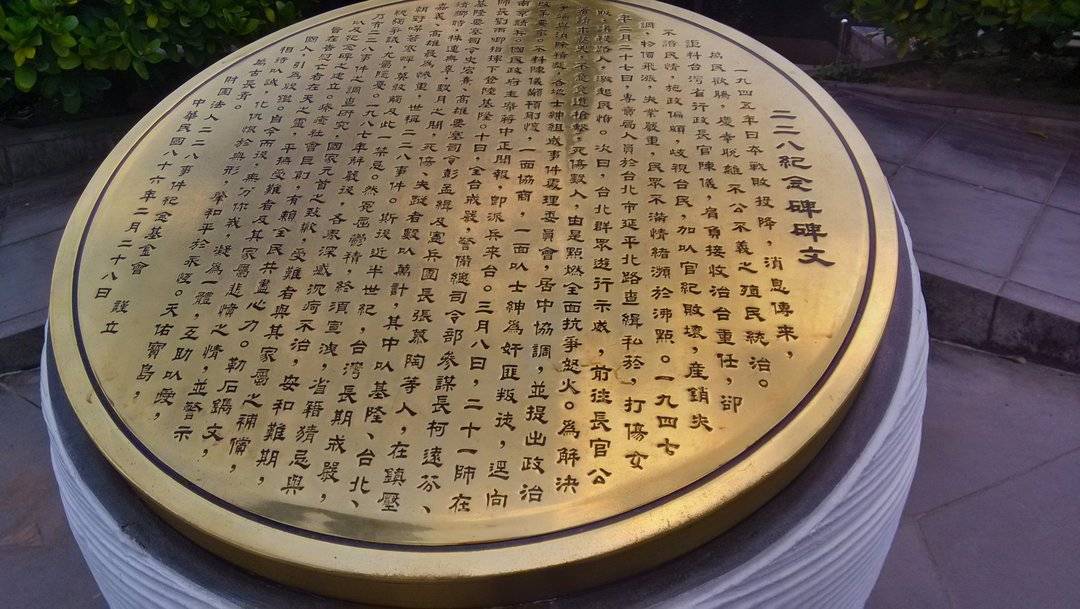 二二八紀念碑碑文
一九四五年日本戰敗投降，消息傳來，
萬民歡騰，慶幸脫離不公不義之殖民統治。
詎料台灣省行政長官陳儀，肩負接收治台重任，卻
不諳民情，施政偏頗，歧視台民，加以官紀敗壞，產銷失
調，物價飛漲，失業嚴重，民眾不滿情緒瀕於沸點。一九四七
年二月二十七日，專賣局人員於台北市延平北路查緝私菸，打傷女
販，誤殺路人，激起民憤。次日，台北群眾遊行示威，前往長官公
請求懲兇，不意竟遭槍擊，死傷數人，由是點燃全面抗爭怒火。為解決
爭端與消除積怨，各地士紳組成事件處理委員會，居中協調，並提出政治
改革要求。不料陳儀顢頇剛愎，一面協商，一面以士紳為奸匪叛徒，逕向
南京請兵。國民政府主席蔣中正聞報，即派兵來台。三月八日，二十一師在
師長劉雨卿指揮下登陸基隆。十日，全台戒嚴。警備總司令部參謀長柯遠芬、
基隆要塞司令史宏熹、高雄要塞司令彭孟緝及憲兵團長張慕陶等人，在鎮壓
清鄉時，株連無辜，數月之間，死傷、失蹤者數以萬計，其中以基隆、台北、
嘉義、高雄最為慘重，世稱二二八事件。斯後近半世紀，台灣長期戒嚴，
朝野噤若寒蟬，莫敢觸及此一禁忌。然冤屈鬱積，終須宣洩，省籍猜忌與
統獨爭議，尤屬隱憂。一九八七年解嚴後，各界深感沉疴不治，安和難期，
乃有二二八事件之調查研究，國家元首之致歉，受難者與其家屬之補償，
以及紀念碑之建立。療癒社會巨創，有賴全民共盡心力。勒石鐫文，
旨在告慰亡者在天之靈，平撫受難者及其家屬悲憤之情，並警示
國人，引為殷鑑。自今而後，無分你我，凝為一體，互助以愛，
相待以誠，化仇恨於無形，肇和平於永遠。天佑寶島，
萬古長青。
財團法人二二八事件紀念基金會 謹立
中華民國八十六年二月二十八日